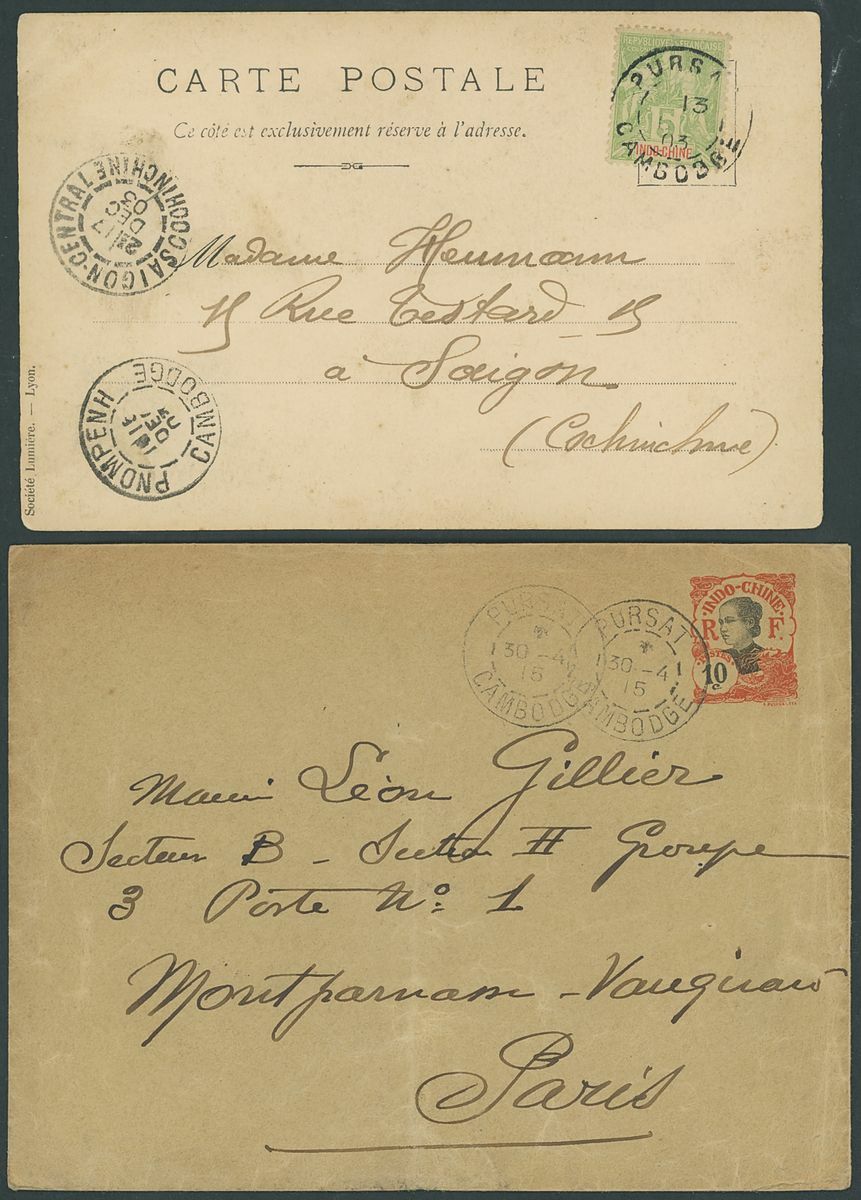 CARTE POSTALE
Ce côté est exclusivement réservé à l'adresse.
REPUBLIQUE FRANCAISE
5
INDO-CHINE
PURSAT
13
03
CAMBODGE
SAIGON-CENTRAL COCHINCHINE
17
DEC
03
Madame Heumann
15 Rue Testard 15
à Saigon
(Cochinchine)
PNOMPENH
CAMBODGE
Société Lumière. — Lyon.
PURSAT
30-4
15
CAMBODGE
PURSAT
30-4
15
CAMBODGE
INDO-CHINE
R F.
POSTES
10 c
Léon Gillier
Secteur B - Section II Groupe
3 Poste No 1
Montparnasse - Vaugirard
Paris